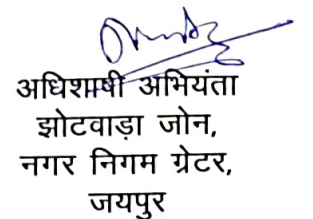 अधिशाषी अभियंता
झोटवाड़ा जोन,
नगर निगम ग्रेटर,
जयपुर